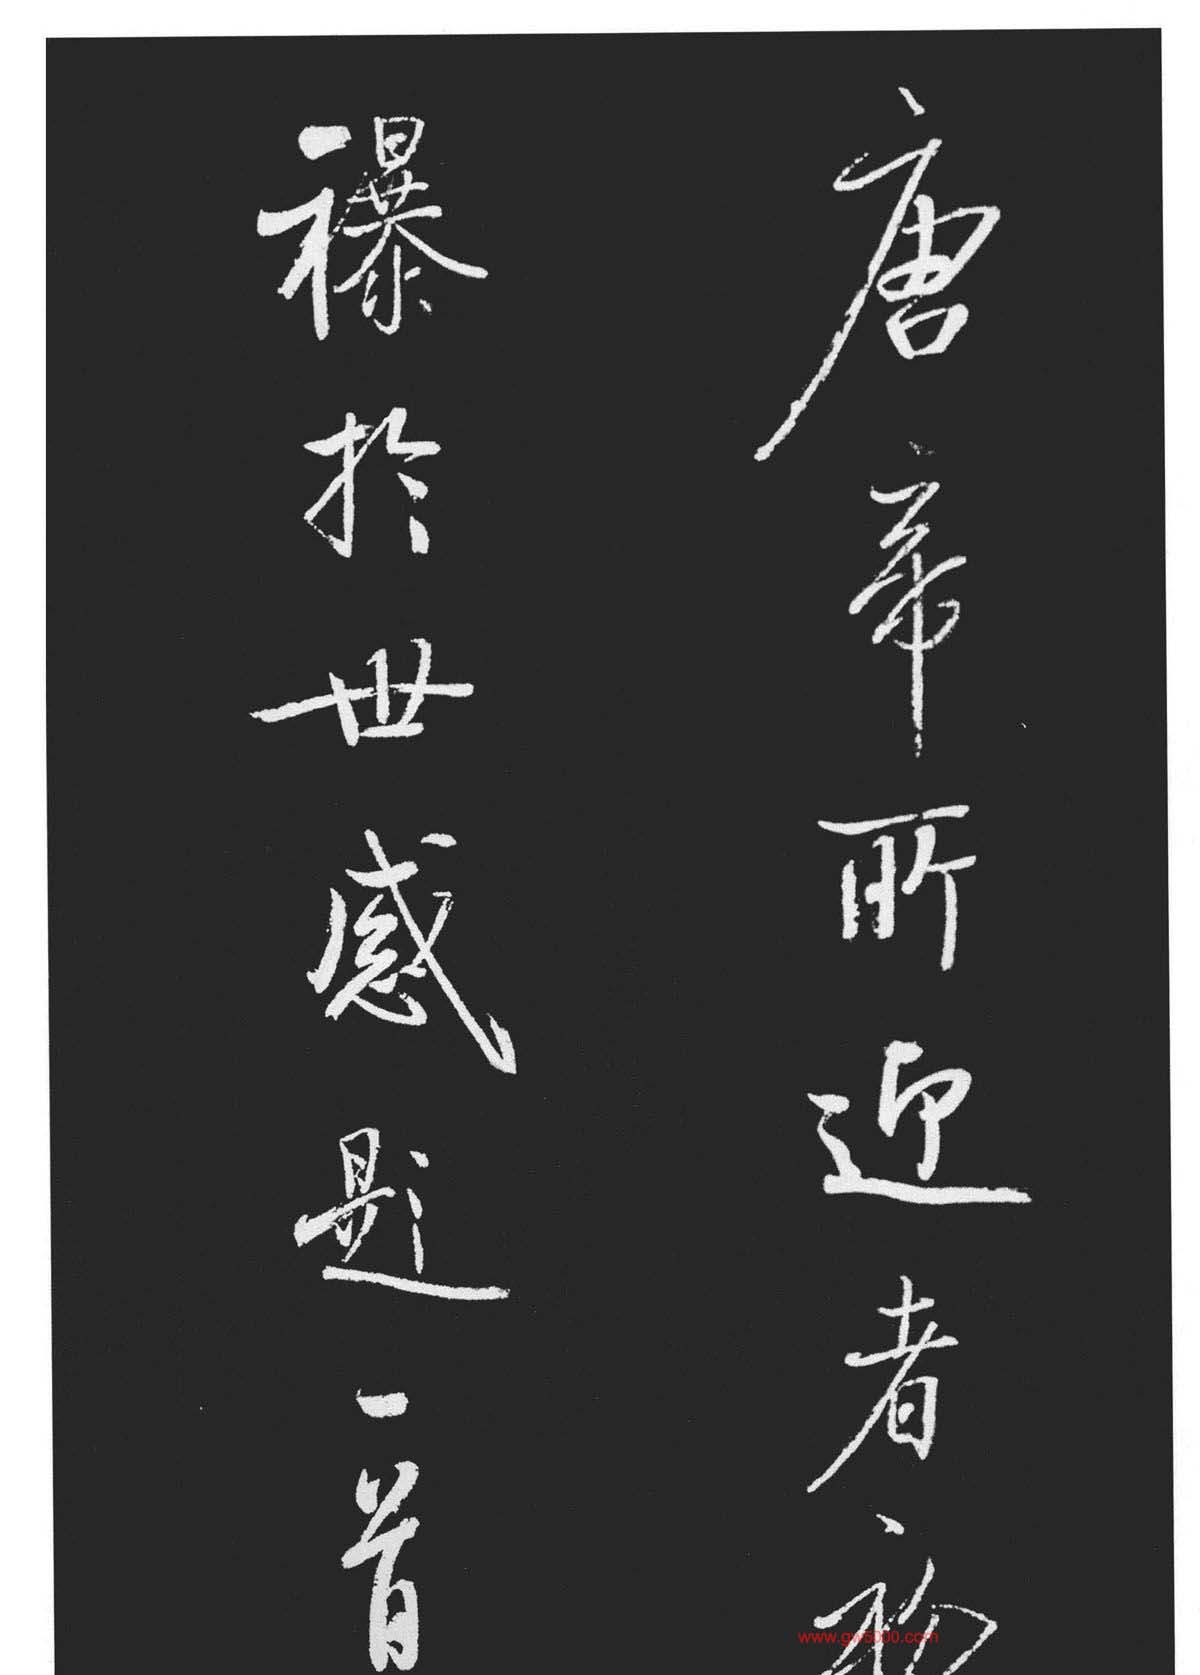 唐帝所迎者
襮於世感題一首
www.gw5000.com